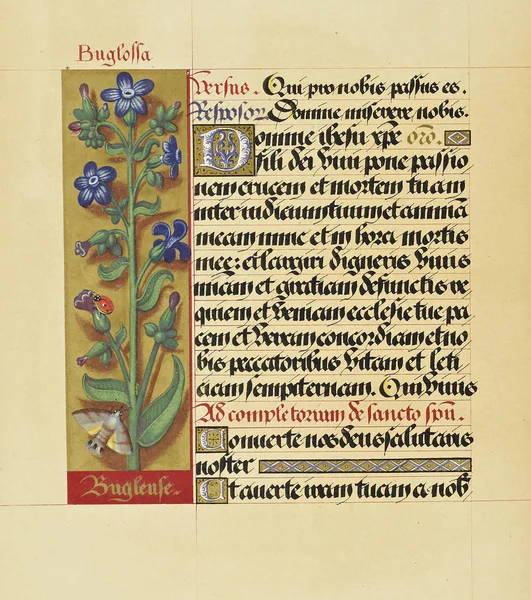 Buglossa
Versus. Qui pro nobis passus es.
Responsor. Domine miserere nobis.
Domine ihesu xpe oro.
fili dei vivi pone passio
nem crucem et mortem tuam
inter iudicium tuum et animā
meam nunc et in hora mortis
mee: et largiri digneris vivis
misericordiam et gratiam defunctis re
quiem et veniam ecclesie tue pa
cem et veram concordiam et no
bis peccatoribus vitam et leti
ciam sempiternam. Qui vivis
Ad completorium de sancto spū.
Converte nos deus salutaris
noster
Et averte iram tuam a nob
Buglense.